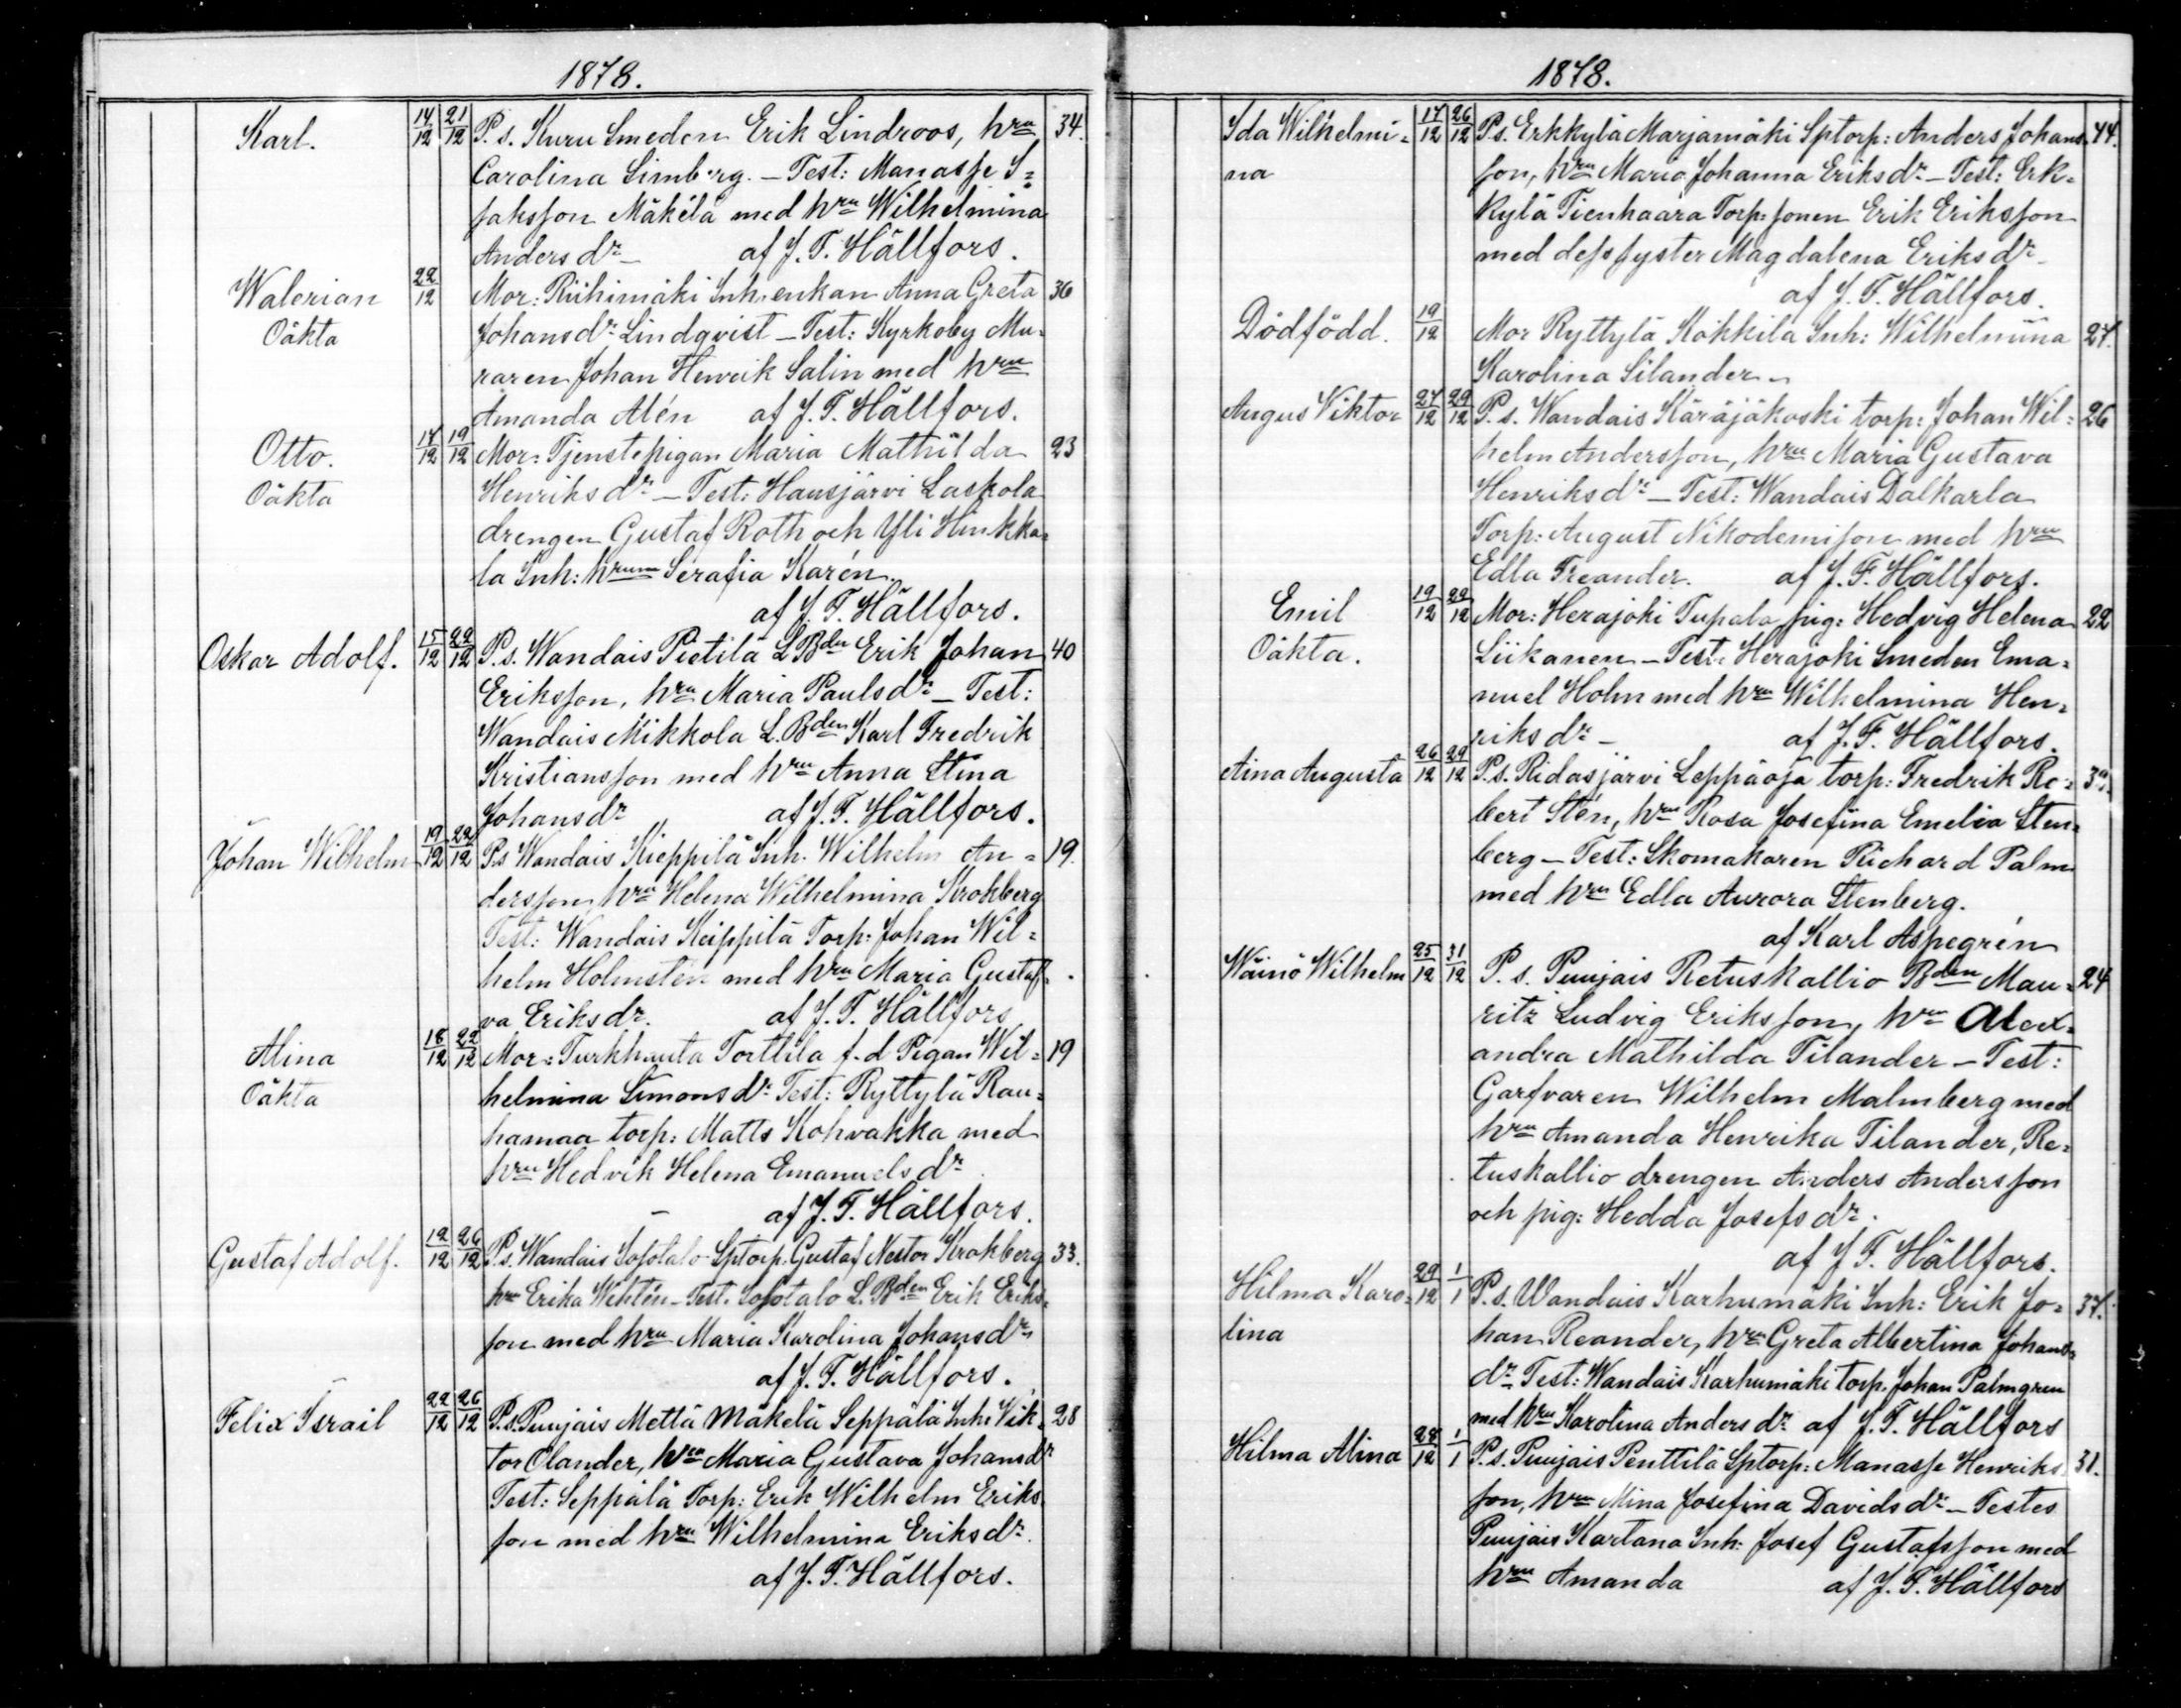 1878.
Karl. 14/12 21/12 P. s. Kuru Smeden Erik Lindroos, hru 34.
Carolina Limberg. – Test: Manasse I=
saksson Mäkelä med hru Wilhelmina
Andersdr – af J. F. Hällfors.
Walerian 22/12 Mor: Riihimäki Inh. enkan Anna Greta 36
Oäkta Johansdr Lindqvist – Test: Kyrkoby Mu=
raren Johan Henrik Salin med hru
Amanda Alén af J. F. Hällfors.
Otto. 17/12 19/12 Mor: Tjenstepigan Maria Mathilda 23
Oäkta Henriksdr – Test: Hausjärvi Laskola
drengen Gustaf Roth och Yli Hinkka=
la Inh: hrum Serafia Karén.
af J. F. Hällfors.
Oskar Adolf. 15/12 22/12 P. s. Wandais Pietilä L Bden Erik Johan 40
Eriksson, hru Maria Paulsdr – Test:
Wandais Mikkola L. Bden Karl Fredrik
Kristiansson med hru Anna Stina
Johansdr af J. F. Hällfors.
Johan Wilhelm 19/12 22/12 Ps Wandais Kieppilä Inh. Wilhelm An= 19.
dersson hru Helena Wilhelmina Krokberg
Test: Wandais Keippilä Torp: Johan Wil=
helm Holmstén med hru Maria Gustaf=
va Eriksdr. af J. F. Hällfors
Alina 18/12 22/12 Mor: Turkhauta Torttila f.d Pigan Wil= 19
Oäkta helmina Simonsdr Test: Ryttylä Rau=
hamaa torp: Matts Kohvakka med
hru Hedvik Helena Emanuelsdr.
af J. F. Hällfors.
Gustaf Adolf. 12/12 26/12 P. s. Wandais Sotalo Sptorp. Gustaf Nestor Krokberg 33.
hru Erika Wehtén – Test. L. Bden Erik Eriks=
son med hru Maria Karolina Johansdr
af J. F. Hällfors.
Felix Israil 22/12 26/12 P. s. Puujais Mettä Mäkelä Seppälä Inh: Vik= 28
tor Olander, hru Maria Gustava Johansdr
Test: Seppälä Torp: Erik Wilhelm Eriks
son med hru Wilhelmina Eriksdr.
af J. F. Hällfors.
1878.
Ida Wilhelmi= 17/12 26/12 Ps. Erkkylä Marjamäki Sptorp: Anders Johans= 44.
na son, hru Maria Johanna Eriksdr – Test: Erk=
kylä Tienhaara Torp: sonen Erik Eriksson
med dess syster Magdalena Eriksdr –
af J. F. Hällfors.
Dödfödd. 19/12 Mor Ryttylä Kökkilä Inh: Wilhelmina 27.
Karolina Silander –
Augus Viktor 27/12 29/12 P. s. Wandais Käräjäkoski torp: Johan Wil= 26
helm Andersson, hru Maria Gustava
Henriksdr – Test: Wandais Dalkarla
Torp: August Nikodemison med hru
Edla Freander. af J. F. Hällfors.
Emil 19/12 22/12 Mor: Herajoki Tupala pig: Hedvig Helena 22
Oäkta. Liikanen – Test: Herajoki Smeden Ema=
nuel Holm med hru Wilhelmina Hen=
riksdr – af J. F. Hällfors.
Aina Augusta 26/12 29/12 P. s. Ridasjärvi Leppäoja torp: Fredrik Ro=
bert Stén, hru Rosa Josefina Emelia Sten=
berg – Test: Skomakaren Richard Palm
med hru Edla Aurora Stenberg.
af Karl Aspegrén
Wäinö Wilhelm 25/12 31/12 P. s. Puujais Retuskallio Bden Mau= 24
ritz Ludvig Eriksson, hru Alex=
andra Mathilda Tilander – Test:
Garfvaren Wilhelm Malmberg med
hru Amanda Henrika Tilander, Re=
tuskallio drengen Anders Andersson
och pig: Hedda Josefsdr.
af J. F. Hällfors.
Hilma Karo= 29/12 1/1 P. s. Wandais Karhumäki Inh: Erik Jo= 37.
lina han Reander, hru Greta Albertina Johans=
dr Test: Wandais Karhumäki torp. Johan Palmgren
med hru Karolina Andersdr af J. F. Hällfors
Hilma Alina 28/12 1/1 P. s. Puujais Penttilä Sptorp: Manasse Henriks 31.
son, hru Mina Josefina Davidsdr – Testes
Puujais Kartano Inh: Josef Gustafsson med
hru Amanda af J. F. Hällfors